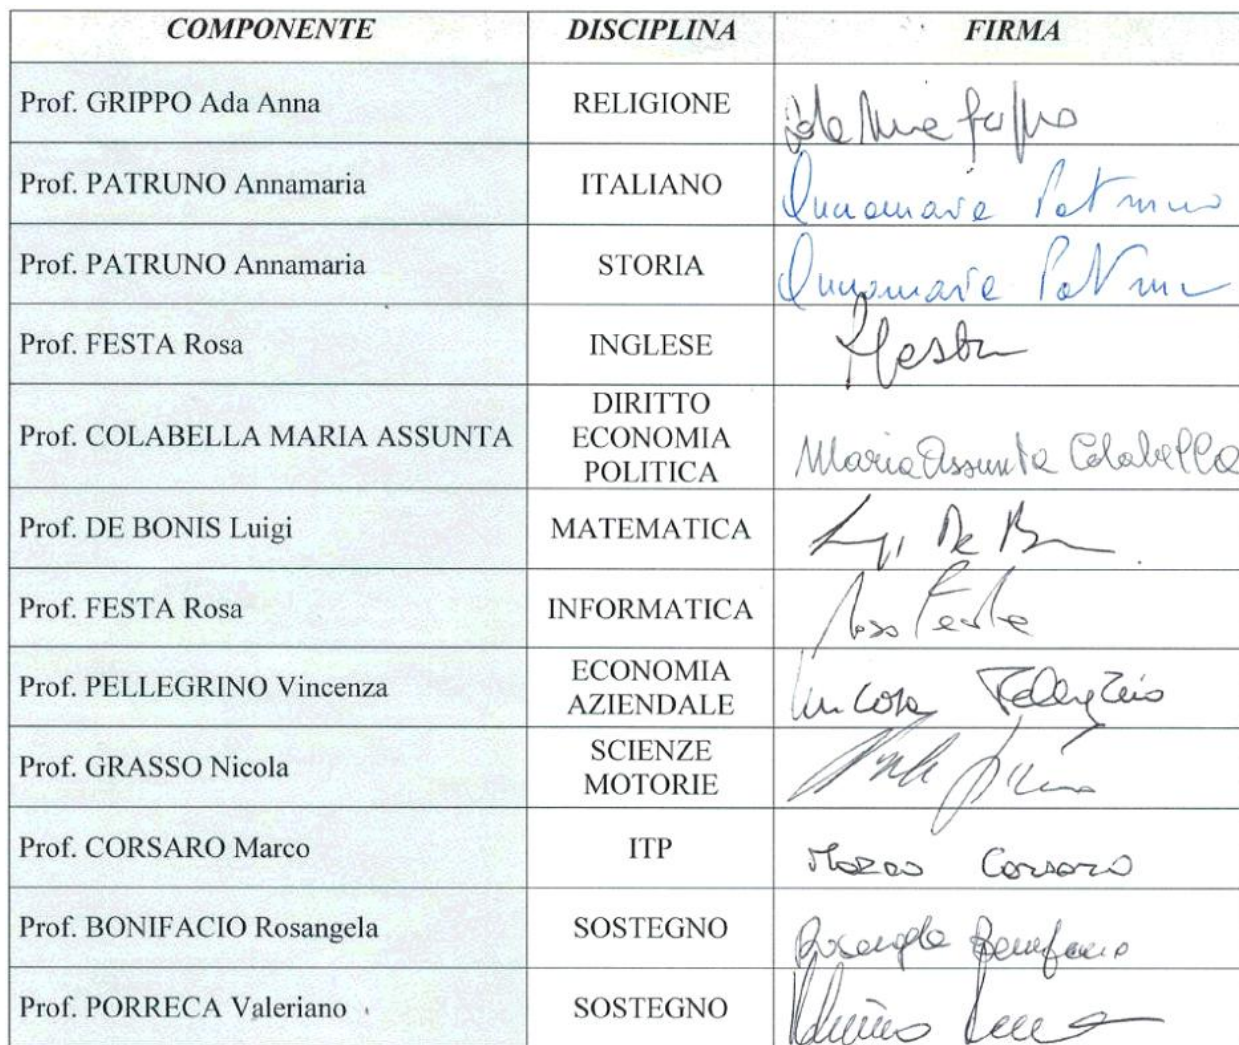 COMPONENTE DISCIPLINA FIRMA
Prof. GRIPPO Ada Anna RELIGIONE
Prof. PATRUNO Annamaria ITALIANO Annamaria Patruno
Prof. PATRUNO Annamaria STORIA Annamaria Patruno
Prof. FESTA Rosa INGLESE RFesta
DIRITTO
Prof. COLABELLA MARIA ASSUNTA ECONOMIA Maria Assunta Colabella
POLITICA
Prof. DE BONIS Luigi MATEMATICA Luigi De Bonis
Prof. FESTA Rosa INFORMATICA Rosa Festa
ECONOMIA
Prof. PELLEGRINO Vincenza
AZIENDALE
SCIENZE
Prof. GRASSO Nicola
MOTORIE
Prof. CORSARO Marco ITP Marco Corsaro
Prof. BONIFACIO Rosangela SOSTEGNO Rosangela Bonifacio
Prof. PORRECA Valeriano SOSTEGNO